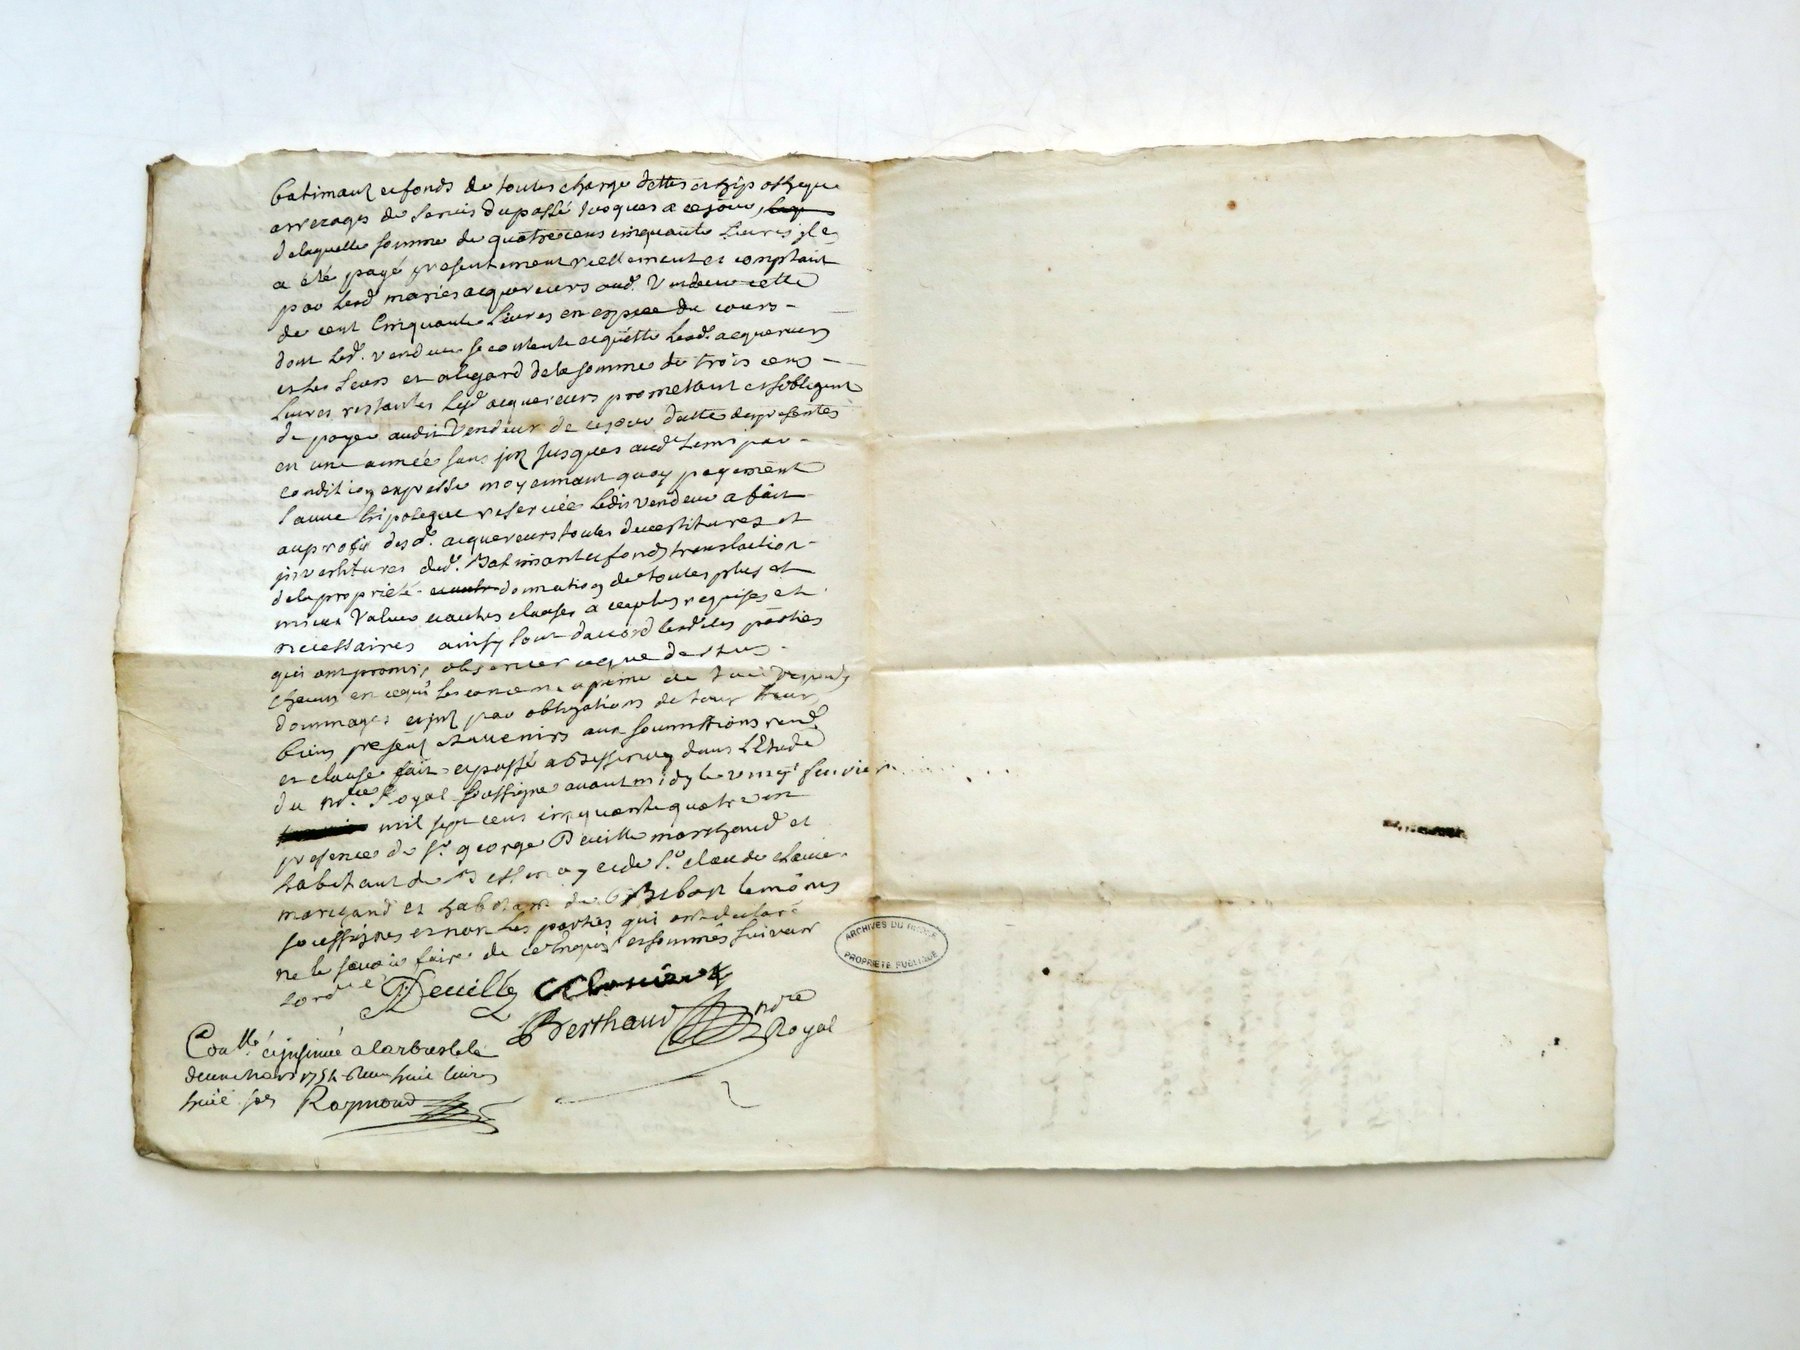 batimant et fonds de toutes charge dettes et hipotheque
arrerages de servis du passé jusques a ce jour,
delaquelle somme de quatre cens cinquante Livres il en
a été payé presentement reellement et comptant
par lesd. mariés acquereurs aud. Vendeur celle
de cent Cinquante Livres en espece du cours -
dont led. vendeur se contente et quitte lesd. acquereurs
et les Leurs et alegard dela somme de trois cens -
Livres restantes lesd. acquereurs promettent et sobligent
de payer audit Vendeur de ce jour datte des presentes
en une année sans jnt jusques aud. tems par -
condition expresse moyennant quoy payement
sauve hipoteque reservée ledit vendeur a fait
au profit desd. acquereurs toutes devestitures et
jnvestitures dud. Batimant et fonds translation -
dela propriété donnation de toutes plus et
mieux Value et autres clauses a ce plus requises et
necessaires ainsy sont daccord lesdites parties
qui ont promis observer ce que dessus -
chacun en ce qui les concerne a peine de tous depends
dommages et jnt par obligations de tous leurs
biens presents et avenirs aux soumissions rend.
et clause fait et passé a Bessenay dans l'Etude
du nore Royal soussigné avant midy le vingt fevrier
mil sept cens cinquante quatre en
presence de Sr. george Deville marchand et
habitant de Bessenay et de Sr. claude
marchand et habitant de Bibost temoins
soussignés et non les parties qui ont declaré
ne le savoir faire de ce enquis et sommés suivant
lordce
Deville
Berthaud nore
Royal
Conllé et jnsinué a larbresle le
mars 1754 Reçu huit livres
huit sols Raymond
ARCHIVES DU RHONE
PROPRIETE PUBLIQUE